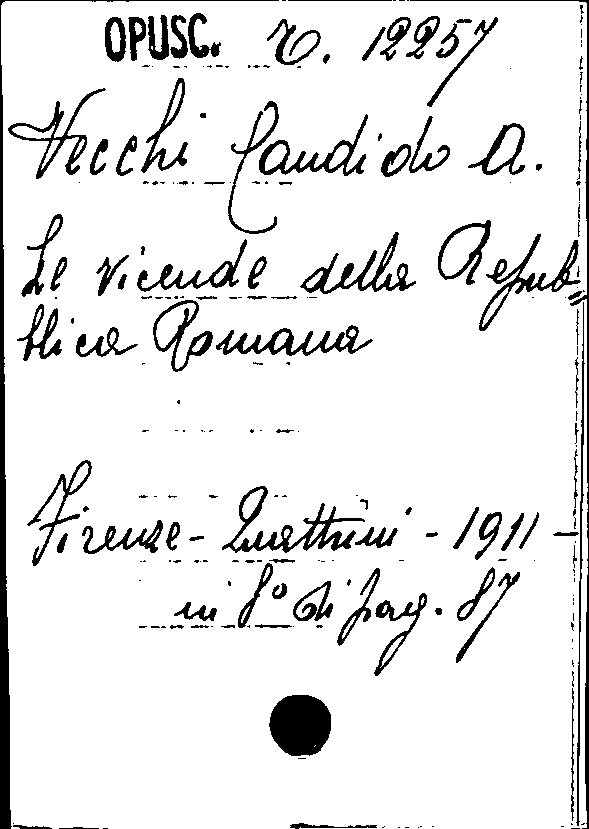 OPUSC. R. 12257
Vecchi Candido A.
Le vicende della Repub=
blica Romana
Firenze - Quattrini - 1911 -
in 8° di pag. 87